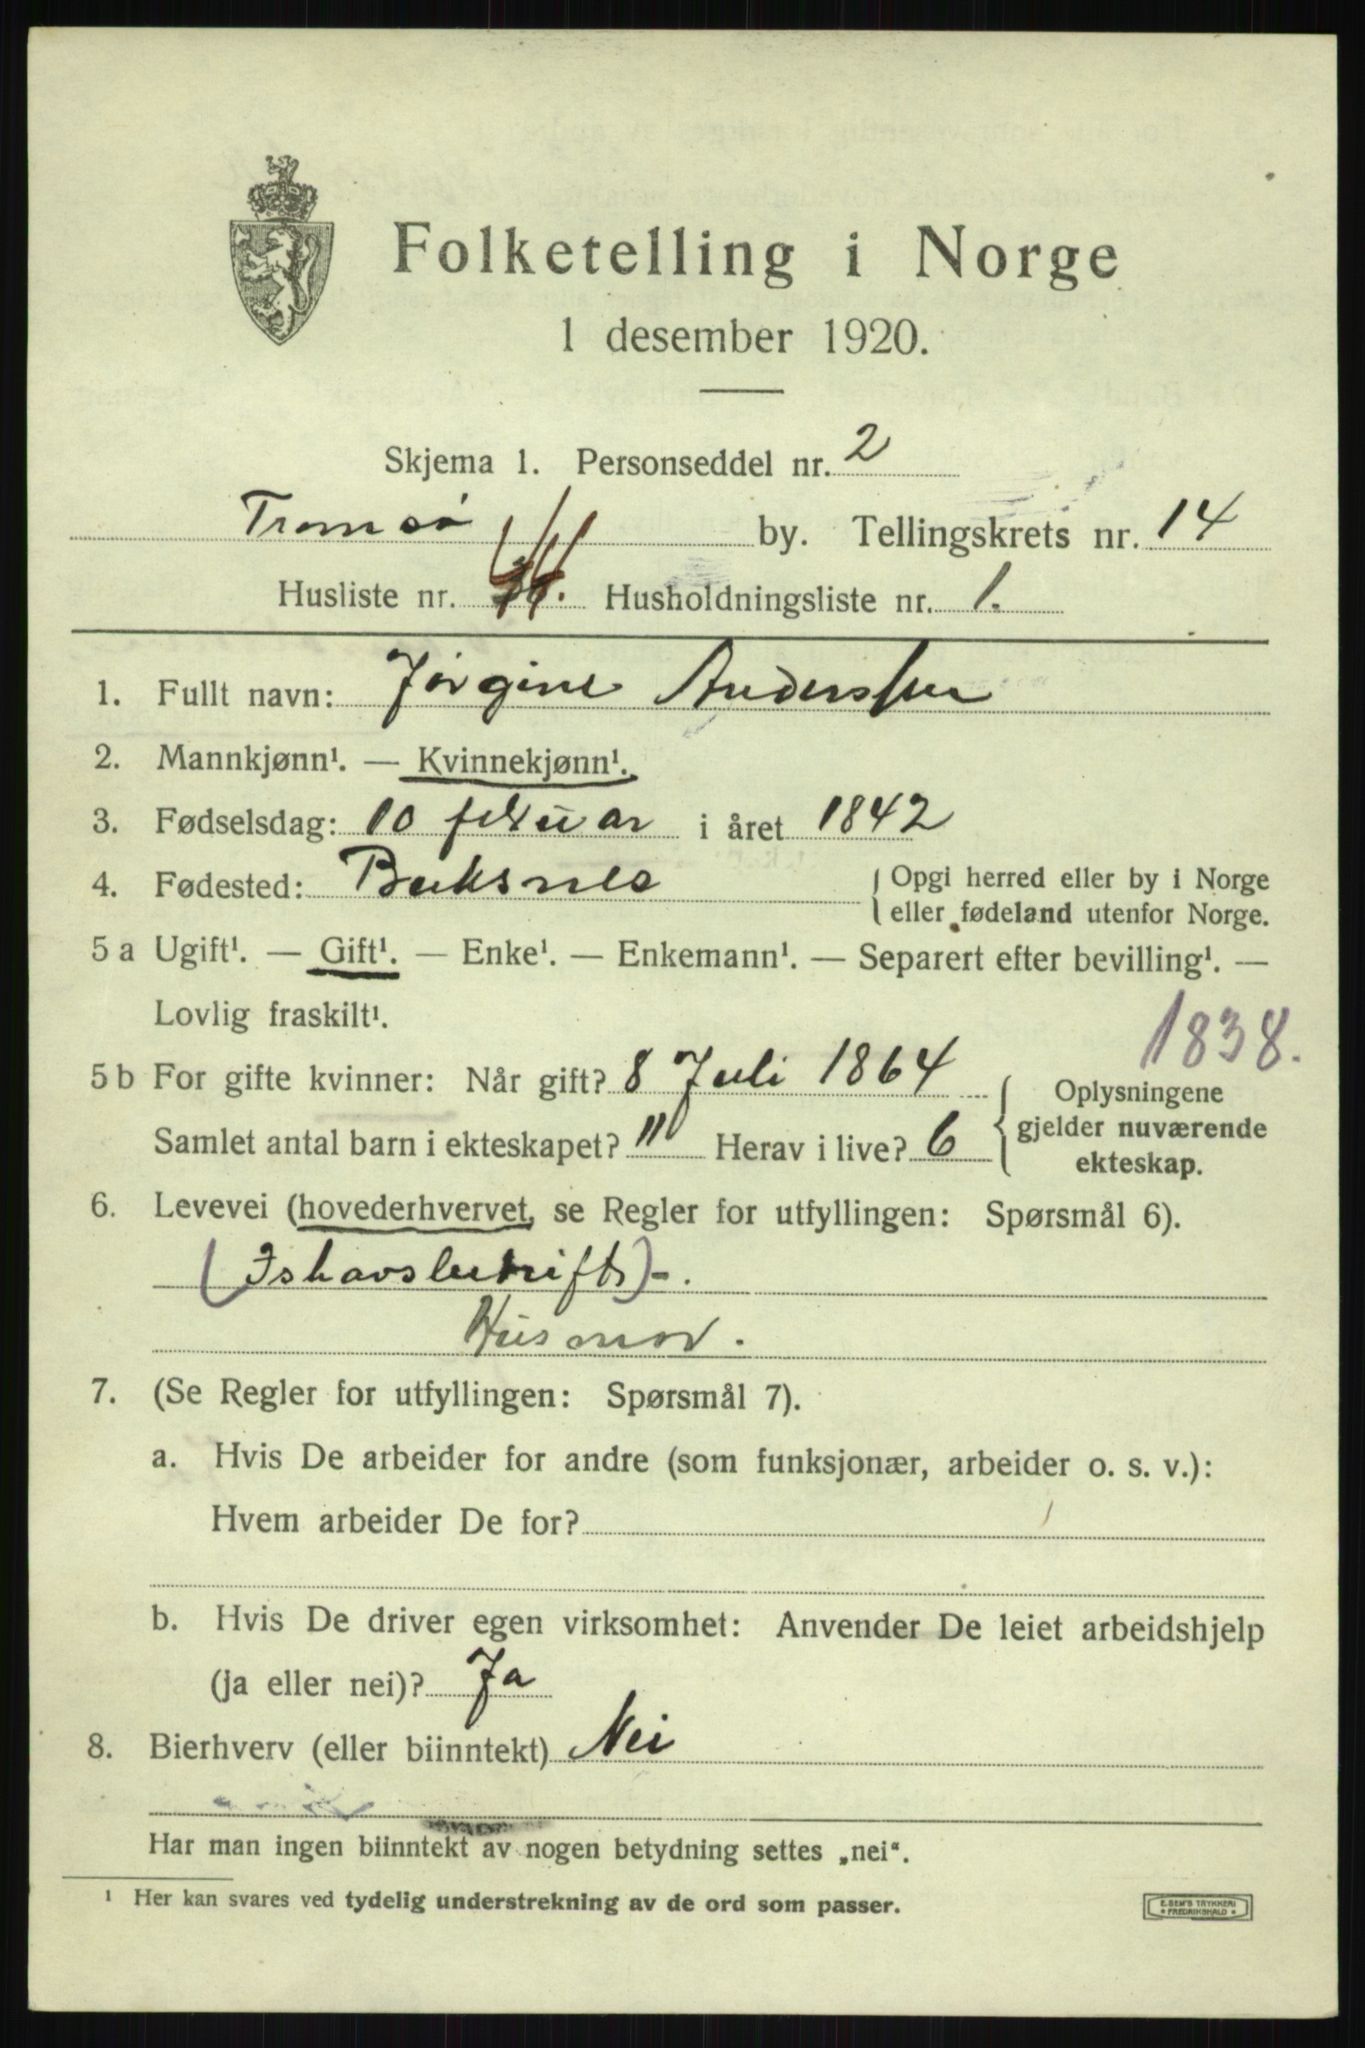 Folketelling i Norge
1 desember 1920.
Skjema 1. Personseddel nr. 2
Tromsø by. Tellingskrets nr. 14
Husliste nr. Husholdningsliste nr. 1.
1. Fullt navn: Jørgine Anderssen
2. Mannkjønn¹. — Kvinnekjønn¹.
3. Fødselsdag: 10 februar i året 1842
4. Fødested: Buksnes { Opgi herred eller by i Norge
eller fødeland utenfor Norge.
5 a Ugift¹. — Gift¹. — Enke¹. — Enkemann¹. — Separert efter bevilling¹. —
Lovlig fraskilt¹.
1838.
5 b For gifte kvinner: Når gift? 8 Juli 1864 { Oplysningene
gjelder nuværende
ekteskap.
Samlet antal barn i ekteskapet? 11 Herav i live? 6
6. Levevei (hovederhvervet, se Regler for utfyllingen: Spørsmål 6).
(Ishavsbedrift)-.
Husmor.
7. (Se Regler for utfyllingen: Spørsmål 7).
a. Hvis De arbeider for andre (som funksjonær, arbeider o. s. v.):
Hvem arbeider De for?
b. Hvis De driver egen virksomhet: Anvender De leiet arbeidshjelp
(ja eller nei)? Ja
8. Bierhverv (eller biinntekt) Nei
Har man ingen biinntekt av nogen betydning settes „nei“.
¹ Her kan svares ved tydelig understrekning av de ord som passer.
E. SEM'S TRYKKERI
* FREDRIKSHALD *